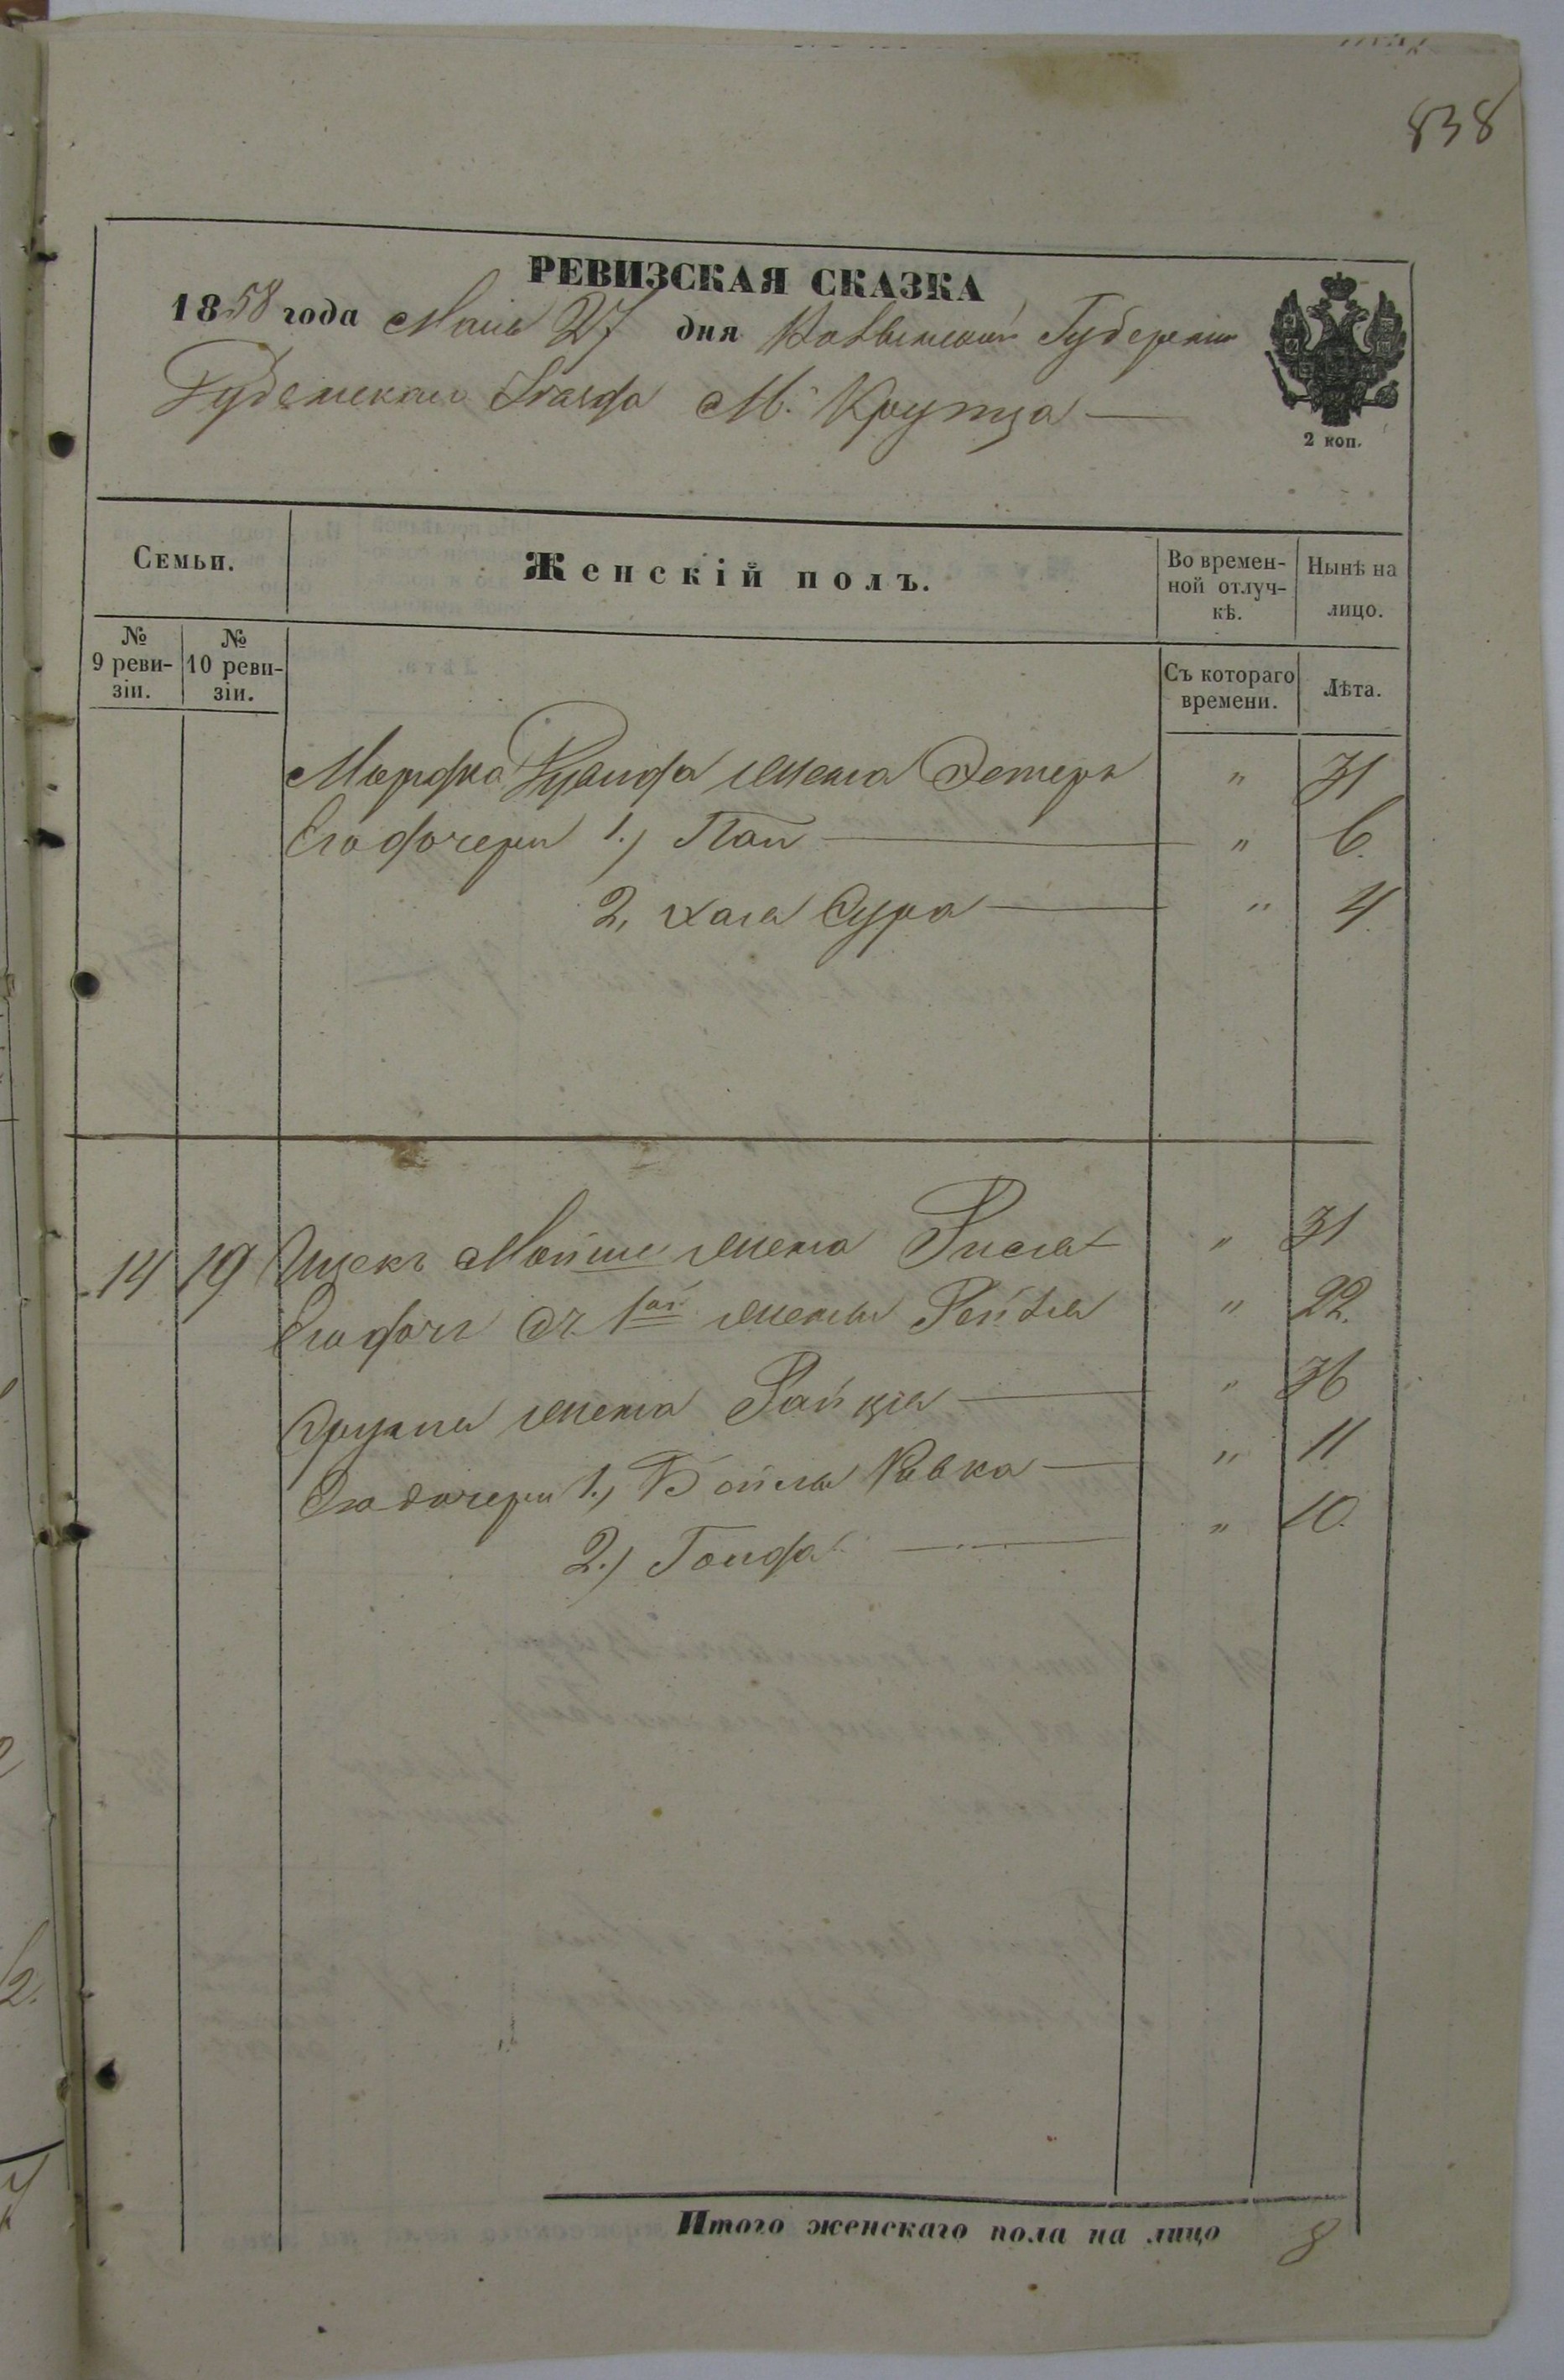 838
РЕВИЗСКАЯ СКАЗКА
1858 года Маія 27 дня Ковенской Губерніи
М. Крупца
2 коп.
Семьи.
Женскій полъ.
Во времен-
ной отлуч-
кѣ.
Нынѣ на
лицо.
№
9 реви-
зіи.
№
10 реви-
зіи.
Съ котораго
времени.
Лѣта.
жена Этеръ " 31
Его дочери 1.) " 6.
2, Хая Сура " 4.
14 19 Ицекъ Мойше жена " 31
Его дочь отъ 1ой жены Рейза " 22.
жена Райца " 36
Его дочери 1.) Бейла Ривка " 11
2.) " 10.
Итого женскаго пола на лицо 8